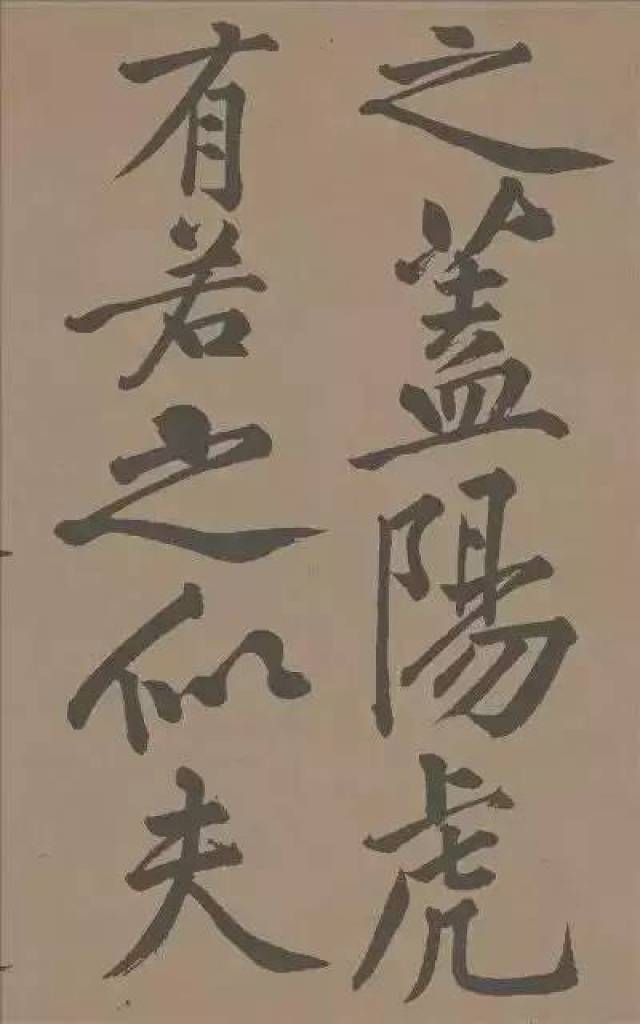 之蓋陽虎
有若之似夫